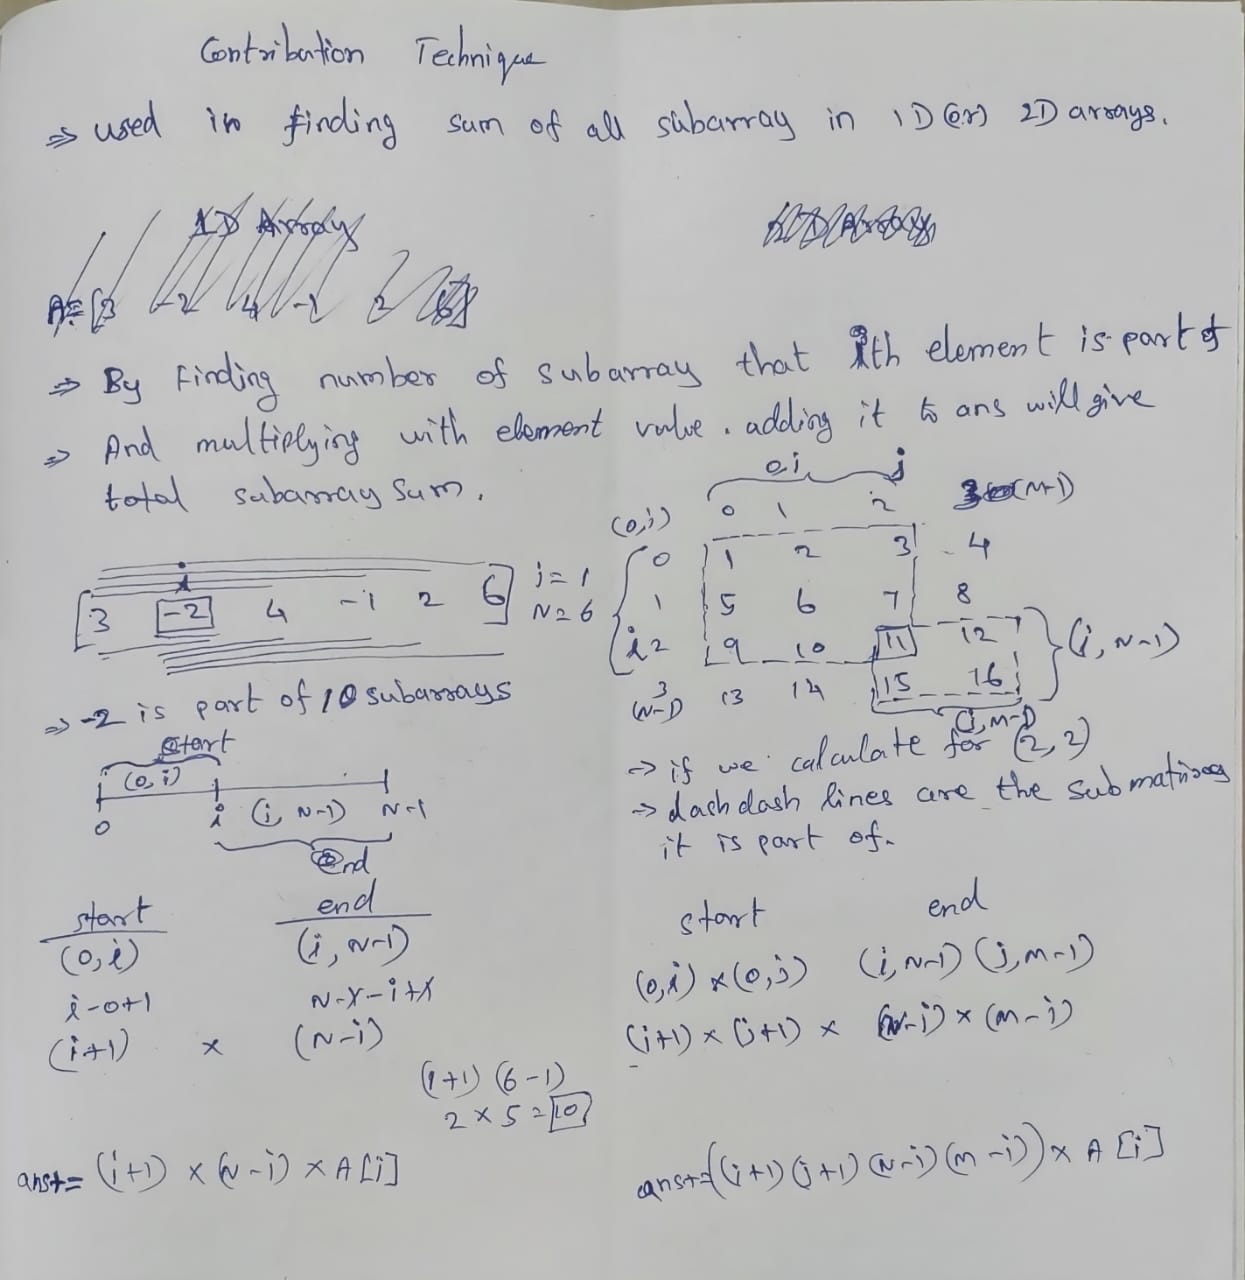 Contribution Technique
⇒ used in finding sum of all subarray in 1D (or) 2D arrays.
1D Array
A = [3 -2 4 -1 2
⇒ By Finding number of subarray that ith element is part of
⇒ And multiplying with element value. adding it to ans will give
total subarray Sum.
[3 -2 4 -1 2 6] i = 1
N = 6
⇒ -2 is part of 10 subarrays
start
(0, i) (i, N-1)
0 i N-1
end
start end
(0, i) (i, N-1)
i-0+1 N-1-i+1
(i+1) × (N-i)
(1+1) (6-1)
2 × 5 = 10
ans+= (i+1) × (N-i) × A[i]
0,j j
(0,i) 0 1 2 3 (M-1)
0 1 2 3 4
1 5 6 7 8
i 2 9 10 11 12 (i, N-1)
3 13 14 15 16
(N-1) (j, M-1)
⇒ if we calculate for (2, 2)
⇒ dash dash lines are the sub matrixes
it is part of.
start end
(0,i) × (0,j) (i, N-1) (j, m-1)
(i+1) × (j+1) × (N-i) × (m-i)
ans+=((i+1) (j+1) (N-i) (m-i)) × A [i]